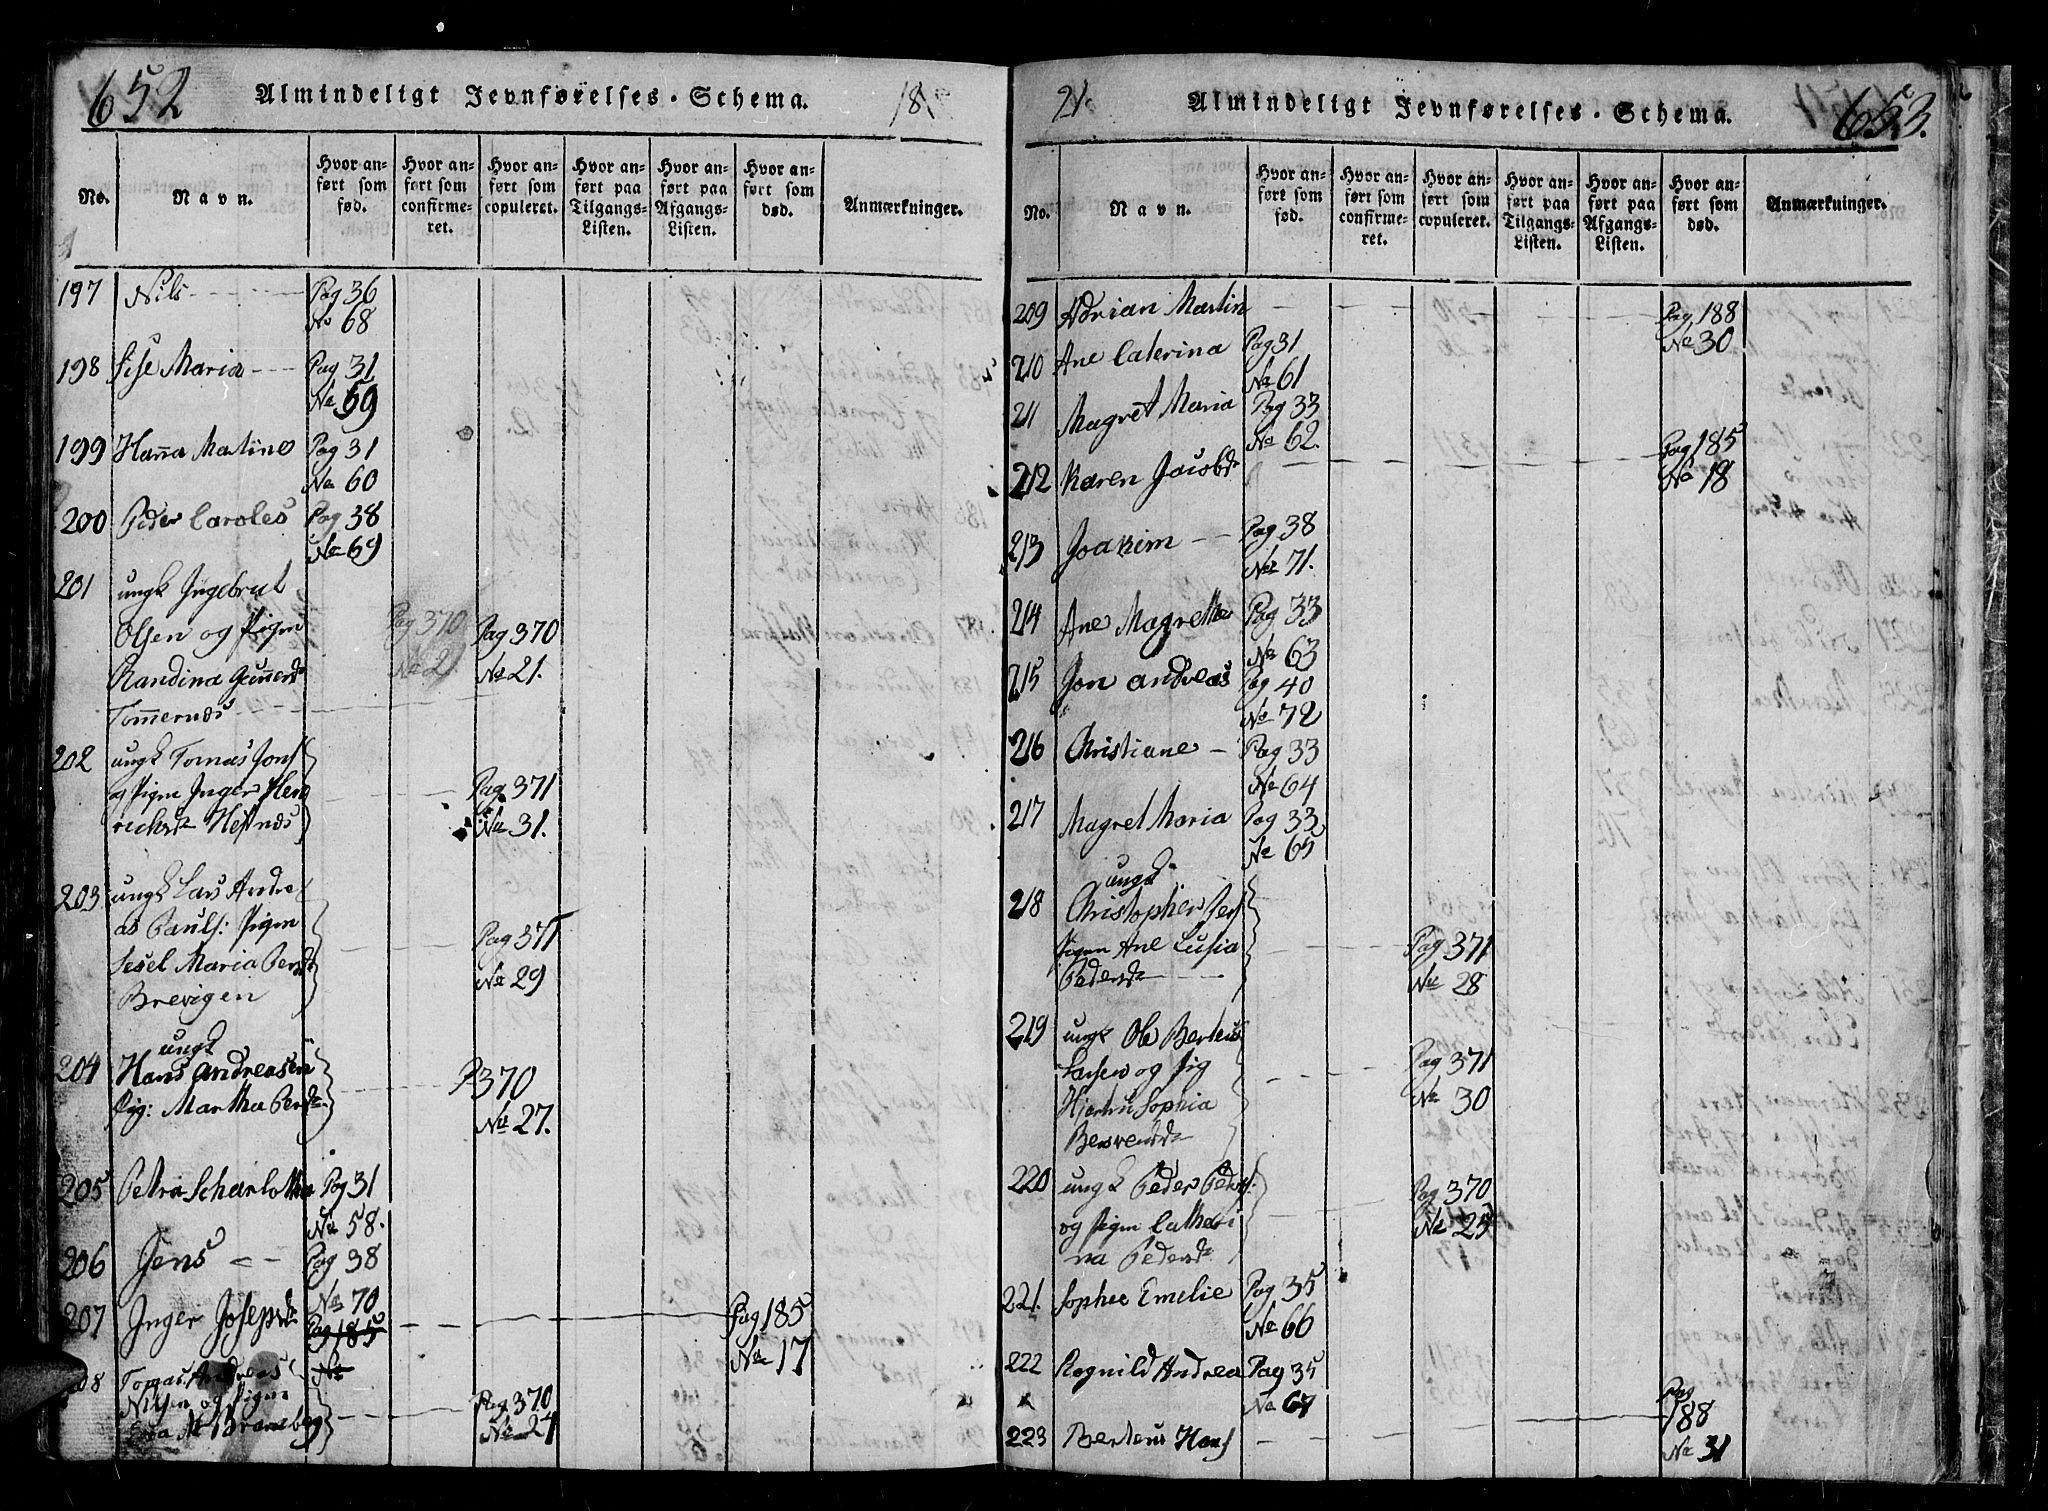 652
Almindeligt Jevnførelses-Schema.
181
No.
Navn.
Hvor anført som fød.
Hvor anført som confirmeret.
Hvor anført som copuleret.
Hvor anført paa Tilgangs-Listen.
Hvor anført paa Afgangs-Listen.
Hvor anført som død.
Anmærkninger.
197 Nils Pag 36
No 68
198 Sise Maria Pag 31
No 59
199 Hanna Martine Pag 31
No 60
200 Peder Caroles Pag 38
No 69
201 ungk Ingebrut
Olsen og Pigen Pag 370 Pag 370
Randina Gunnersd No 21 No 21.
Tommernæs
202 ungk Tomas Jons
og Pigen Inger Hen Pag 371
richsd Hestnæs No 31.
203 ungk Lars Andre
as Pauls: Pigen Pag 371
Sesel Maria Persd No 29
Brevigen
204 ungk
Hans Andreasen P 370
Pig: Martha Persd No 27.
205 Petria Scharlotha Pag 31
No 58.
206 Jens Pag 38
No 70
207 Inger Josephsd Pag 185 Pag 185
No No 17
208 Tomas Andreas
Nilsen og Pigen Pag 370
Eva M Braneberg No 24
21
Almindeligt Jevnførelses-Schema.
653.
No.
Navn.
Hvor anført som fød.
Hvor anført som confirmeret.
Hvor anført som copuleret.
Hvor anført paa Tilgangs-Listen.
Hvor anført paa Afgangs-Listen.
Hvor anført som død.
Anmærkninger.
209 Adrian Martin Pag 188
No 30
210 Ane Caterina Pag 31
No 61
211 Magret Maria Pag 33
No 62.
212 Karen Jacobsd Pag 185
No 18
213 Joakim Pag 38
No 71.
214 Ane Magretha Pag 33
No 63
215 Jon Andreas Pag 40
No 72
216 Christiane Pag 33
No 64
217 Magret Maria Pag 33
No 65
218 ungk
Christopher Pers
Pigen Ane Lusia Pag 371
Pedersd No 28
219 ungk Ole Berteus
Larsen og Pig Pag 371
Hjertru Sophia No 30
Bersvendd
220 ungk Peder Peders. Pag 370
og Pigen Cathari No 25
na Pedersd
221. Sophee Emelie Pag 35
No 66
222 Rognild Andrea Pag 35
No 67
223 Berteus Hans Pag
188
No 31